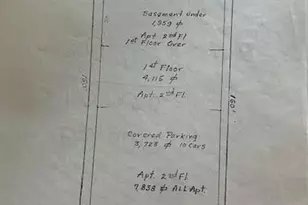 Basement Under
1,359 ϕ
Apt 2nd Fl
1st Floor Over
1st Floor
4,116 ϕ
Apt. 2nd Fl
150'
150'
Covered Parking
3,723 ϕ 10 Cars
Apt. 2nd Fl
7,838 ϕ ALL Apt.